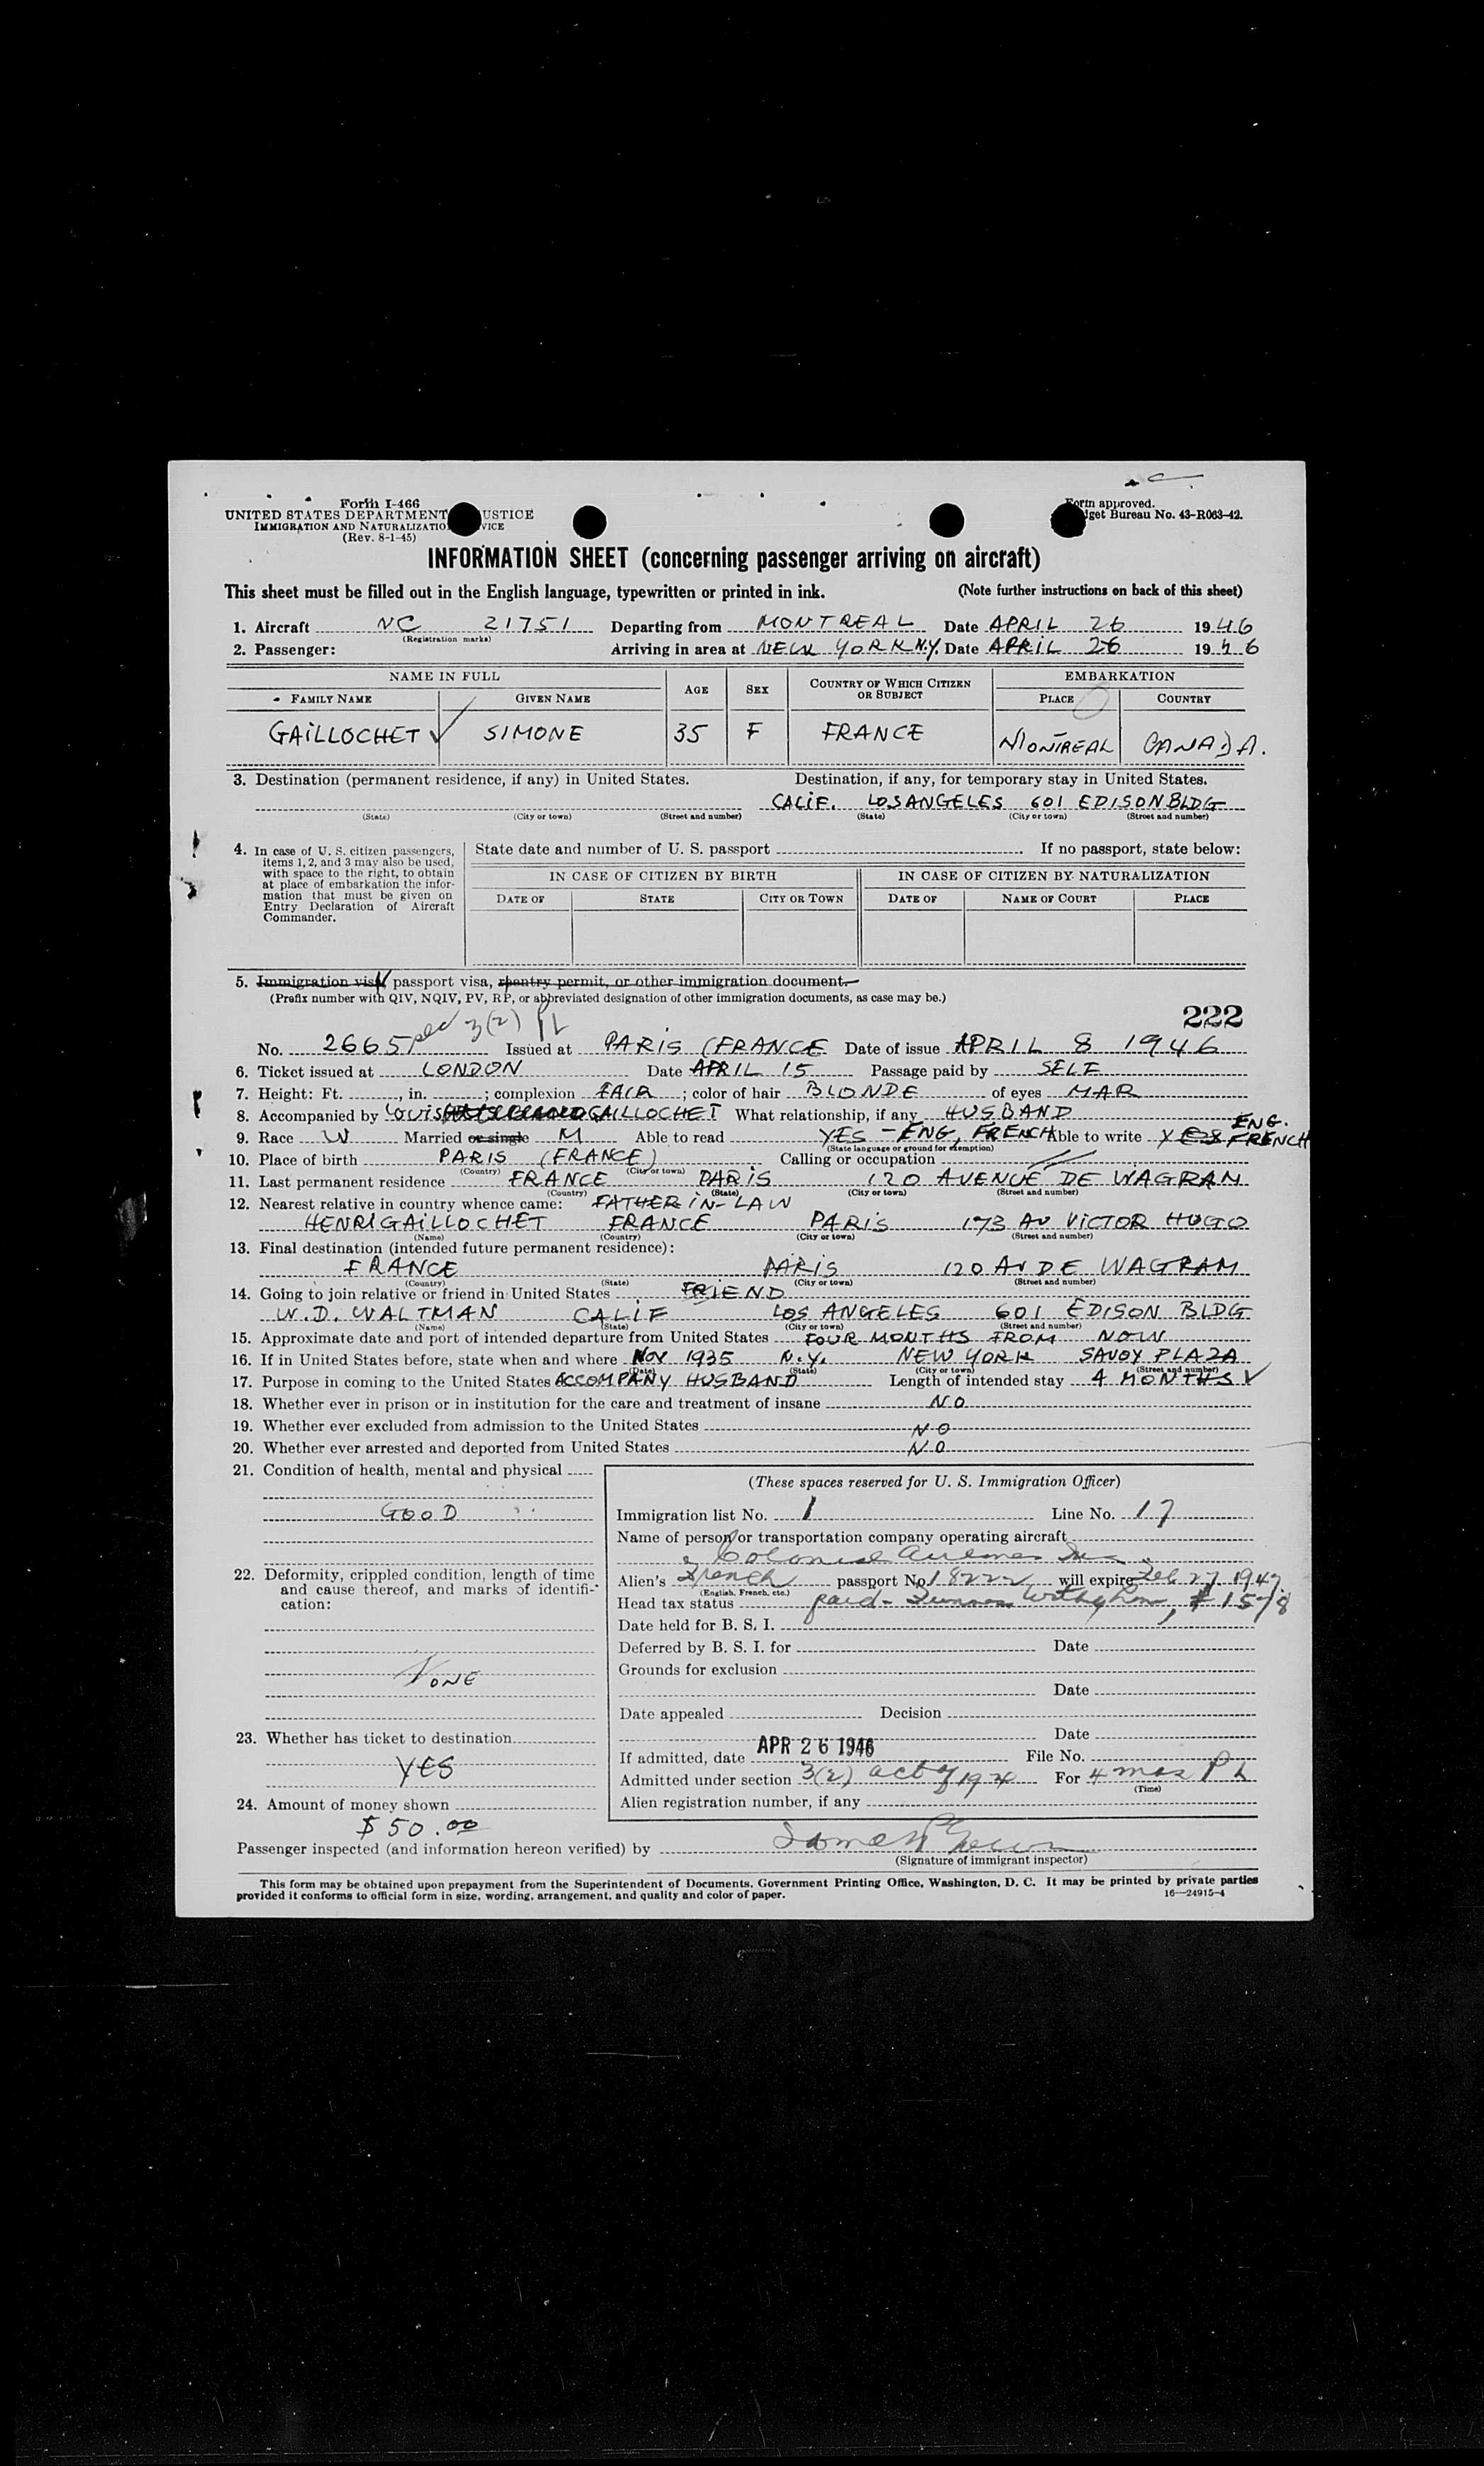 Form I-466
UNITED STATES DEPARTMENT USTICE
IMMIGRATION AND NATURALIZATIO VICE
(Rev. 8-1-45)
Form approved.
dget Bureau No. 43-R063-42.
INFORMATION SHEET (concerning passenger arriving on aircraft)
This sheet must be filled out in the English language, typewritten or printed in ink. (Note further instructions on back of this sheet)
1. Aircraft NC 21751 Departing from MONTREAL Date APRIL 26 1946
(Registration marks)
2. Passenger: Arriving in area at NEW YORK N.Y. Date APRIL 26 1946
NAME IN FULL AGE SEX COUNTRY OF WHICH CITIZEN OR SUBJECT EMBARKATION
FAMILY NAME GIVEN NAME PLACE COUNTRY
GAILLOCHET SIMONE 35 F FRANCE MONTREAL CANADA.
3. Destination (permanent residence, if any) in United States. Destination, if any, for temporary stay in United States.
CALIF. LOS ANGELES 601 EDISON BLDG
(State) (City or town) (Street and number) (State) (City or town) (Street and number)
4. In case of U. S. citizen passengers, items 1, 2, and 3 may also be used, with space to the right, to obtain at place of embarkation the information that must be given on Entry Declaration of Aircraft Commander.
State date and number of U. S. passport If no passport, state below:
IN CASE OF CITIZEN BY BIRTH IN CASE OF CITIZEN BY NATURALIZATION
DATE OF STATE CITY OR TOWN DATE OF NAME OF COURT PLACE
5. Immigration visa, passport visa, reentry permit, or other immigration document.
(Prefix number with QIV, NQIV, PV, RP, or abbreviated designation of other immigration documents, as case may be.)
222
3(2) PL
No. 2665 Issued at PARIS (FRANCE Date of issue APRIL 8 1946
6. Ticket issued at LONDON Date APRIL 15 Passage paid by SELF
7. Height: Ft. , in. ; complexion FAIR ; color of hair BLONDE of eyes MAR
8. Accompanied by LOUIS GAILLOCHET What relationship, if any HUSBAND
9. Race W Married or single M Able to read YES - ENG, FRENCH Able to write YES ENG. FRENCH
(State language or ground for exemption)
10. Place of birth PARIS (FRANCE) Calling or occupation
(Country) (City or town)
11. Last permanent residence FRANCE PARIS 120 AVENUE DE WAGRAM
(Country) (State) (City or town) (Street and number)
12. Nearest relative in country whence came: FATHER IN-LAW
HENRI GAILLOCHET FRANCE PARIS 173 AV VICTOR HUGO
(Name) (Country) (City or town) (Street and number)
13. Final destination (intended future permanent residence):
FRANCE PARIS 120 AV DE WAGRAM
(Country) (State) (City or town) (Street and number)
14. Going to join relative or friend in United States FRIEND
W.D. WALTMAN CALIF LOS ANGELES 601 EDISON BLDG
(Name) (State) (City or town) (Street and number)
15. Approximate date and port of intended departure from United States FOUR MONTHS FROM NOW
16. If in United States before, state when and where NOV 1935 N.Y. NEW YORK SAVOY PLAZA
(Date) (State) (City or town) (Street and number)
17. Purpose in coming to the United States ACCOMPANY HUSBAND Length of intended stay 4 MONTHS
18. Whether ever in prison or in institution for the care and treatment of insane NO
19. Whether ever excluded from admission to the United States NO
20. Whether ever arrested and deported from United States NO
21. Condition of health, mental and physical
GOOD
22. Deformity, crippled condition, length of time and cause thereof, and marks of identification:
NONE
23. Whether has ticket to destination
YES
24. Amount of money shown
$50.00
(These spaces reserved for U. S. Immigration Officer)
Immigration list No. 1 Line No. 17
Name of person or transportation company operating aircraft
Colonial Airlines Inc
Alien's French passport No. 18222 will expire Feb 27 1947
(English, French, etc.)
Head tax status paid - #1578
Date held for B. S. I.
Deferred by B. S. I. for Date
Grounds for exclusion
Date
Date appealed Decision
Date
If admitted, date APR 26 1946 File No.
Admitted under section 3(2) act of 1924 For 4 mos PL
(Time)
Alien registration number, if any
Passenger inspected (and information hereon verified) by
(Signature of immigrant inspector)
This form may be obtained upon prepayment from the Superintendent of Documents, Government Printing Office, Washington, D. C. It may be printed by private parties
provided it conforms to official form in size, wording, arrangement, and quality and color of paper. 16—24915-4